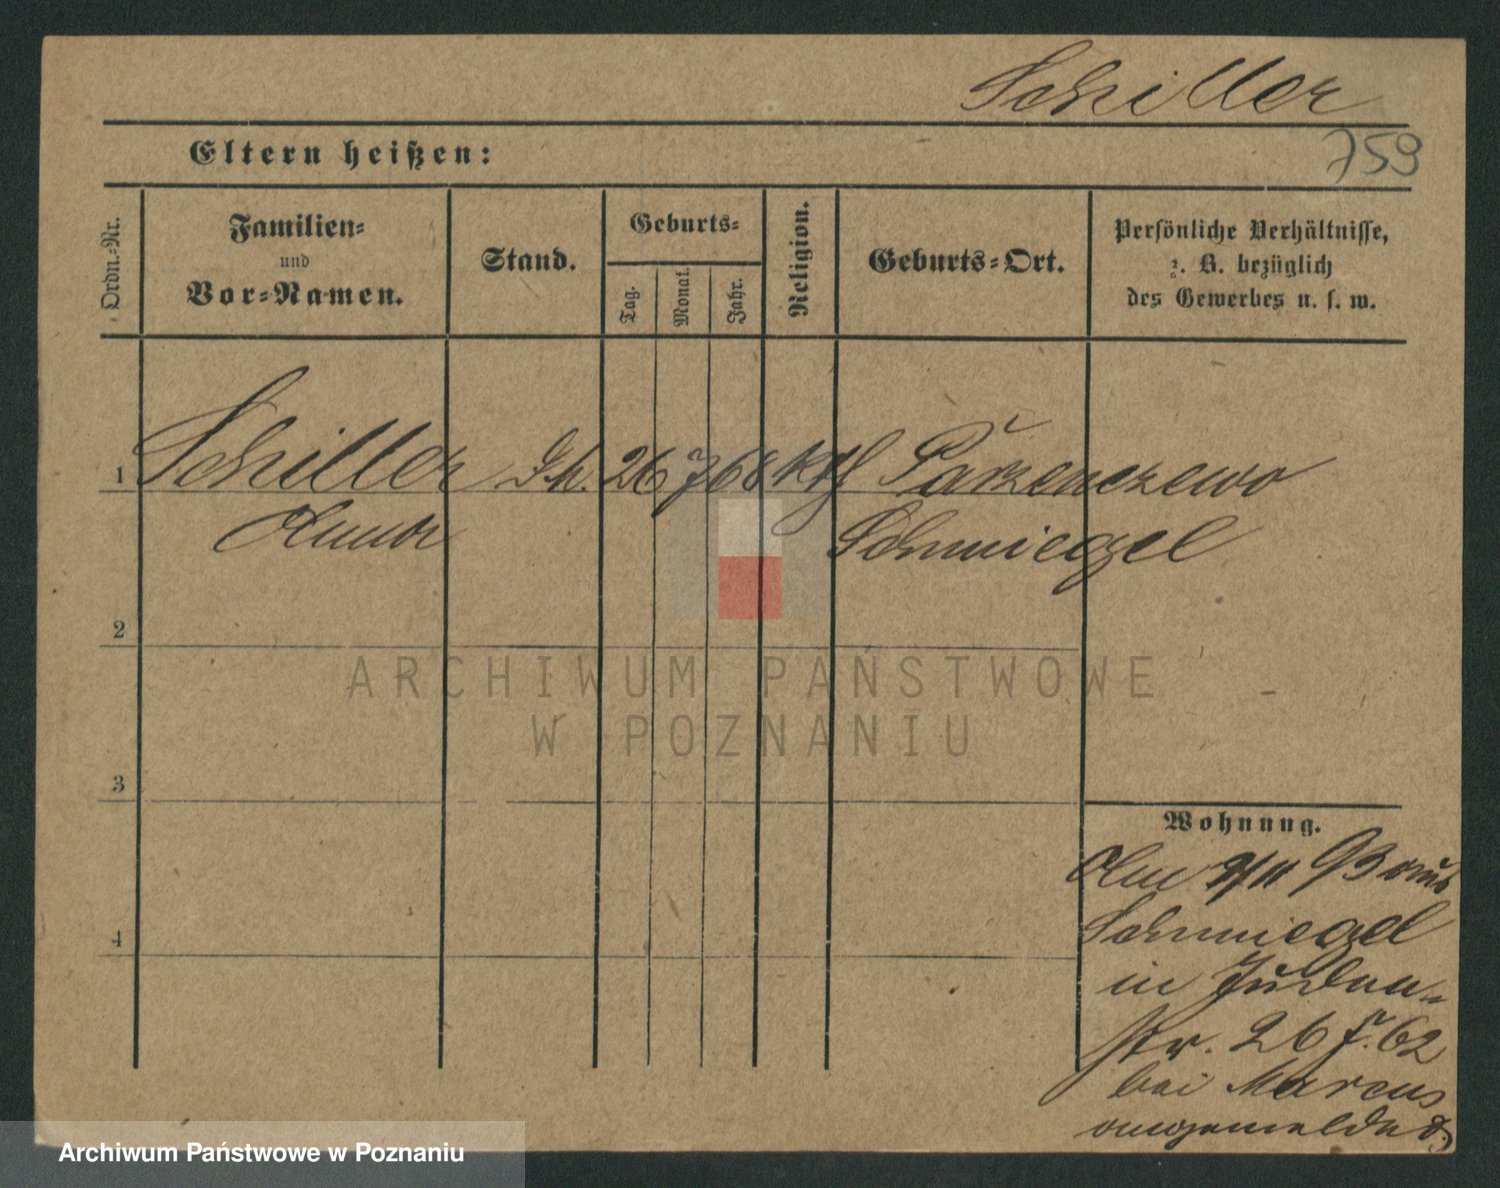 Schiller
759
Eltern heißen:
Ordn.-Nr.
Familien-
und
Vor-Namen.
Stand.
Geburts-
Tag.
Monat.
Jahr.
Religion.
Geburts-Ort.
Persönliche Verhältnisse,
z. B. bezüglich
des Gewerbes u. s. w.
1 Schiller 26 7 68 kth Parzenczewo
Anna Schmiegel
2
3
4
Wohnung.
Am 9/11 93 aus
Schmiegel
in Juden-
str. 26 f. 62
bei Marcus
angemeldet
ARCHIWUM PAŃSTWOWE
W POZNANIU
Archiwum Państwowe w Poznaniu